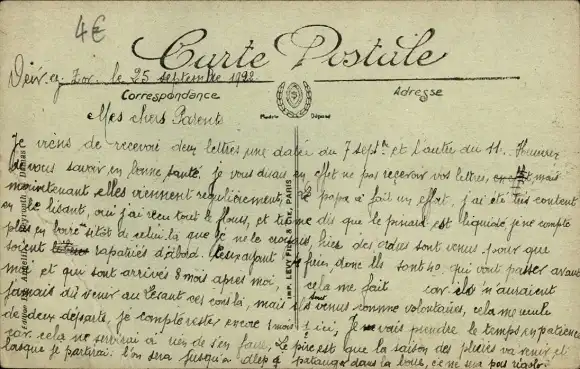 4€
Carte Postale
Deir-ez-Zor, le 25 septembre 1922
Correspondance
Adresse
Modèle Déposé
Mes chers Parents
Je viens de recevoir deux lettres une datée du 7 sept et l'autre du 11. Heureux
de vous savoir en bonne santé, je vous disais en effet ne pas recevoir vos lettres, mais
maintenant elles viennent régulièrement, papa a fait un effort, j'ai été très content
en le lisant, oui j'ai reçu tout le flous, et tu me dis que le pinard est liquidé, je ne compte
plus en boire sitôt de celui là que je ne le croyais, hier des ordres sont venus pour que
soient rapatriés d'abord les ayant 4 frères, donc ils sont 40 qui vont passer avant
moi et qui sont arrivés 8 mois après moi, cela me fait car ils n'auraient
jamais dû venir au Levant ces cons là, mais ils sont venus comme volontaires, cela me recule
de deux départs, je compte rester encore 1 mois ici, Je vais prendre le temps en patience
car cela ne servirait à rien de s'en faire, Le pire est que la saison des pluies va venir et
lorsque je partirai l'on sera jusqu'à Alep à patauger dans la boue, ce ne sera pas rigolo
IMP. LEVY FILS & CIE, PARIS